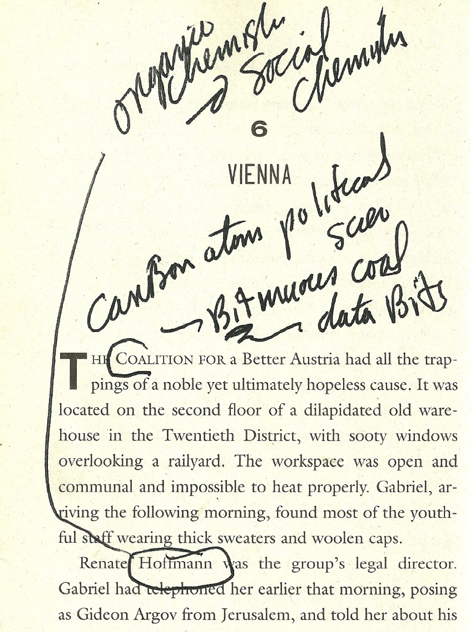 organic
chemist
→ Social
chemists
6
VIENNA
CarBon atom political
scien
→ Bitmuous coal
data Bits
THE COALITION FOR a Better Austria had all the trap-
pings of a noble yet ultimately hopeless cause. It was
located on the second floor of a dilapidated old ware-
house in the Twentieth District, with sooty windows
overlooking a railyard. The workspace was open and
communal and impossible to heat properly. Gabriel, ar-
riving the following morning, found most of the youth-
ful staff wearing thick sweaters and woolen caps.
Renate Hoffmann was the group's legal director.
Gabriel had telephoned her earlier that morning, posing
as Gideon Argov from Jerusalem, and told her about his